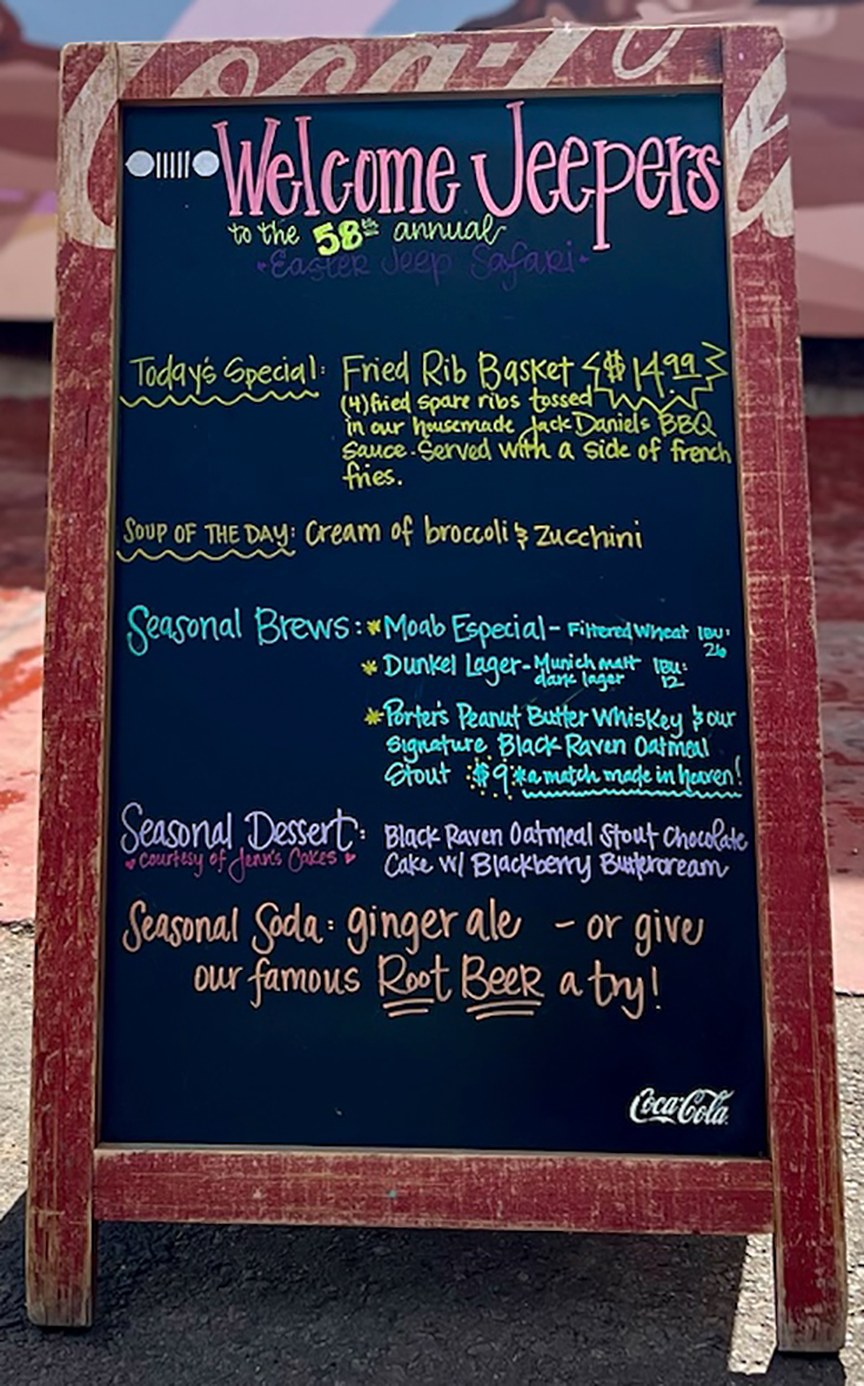 Coca-Cola
Welcome Jeepers
to the 58th annual
Easter Jeep Safari
Today's Special: Fried Rib Basket $14.99
(4) fried spare ribs tossed
in our housemade Jack Daniels BBQ
Sauce. Served with a side of french
fries.
SOUP OF THE DAY: Cream of broccoli & Zucchini
Seasonal Brews: * Moab Especial - Filtered Wheat IBU: 26
* Dunkel Lager - Munich malt dark lager IBU: 12
* Porter's Peanut Butter Whiskey & our
signature Black Raven Oatmeal
Stout $9 *a match made in heaven!
Seasonal Dessert: Black Raven Oatmeal Stout Chocolate
♥ Courtesy of Jenn's Cakes ♥ Cake w/ Blackberry Buttercream
Seasonal Soda: ginger ale - or give
our famous Root Beer a try!
Coca-Cola